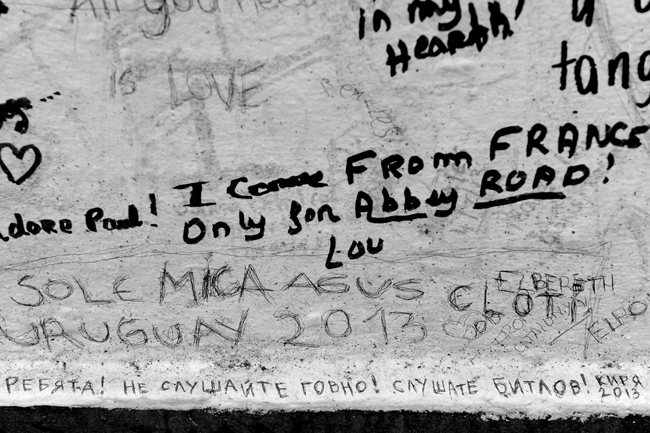 All you need
in my
Hearth!
is LOVE
tang
adore Paul!
I Come FROM FRANCE
Only for Abbey ROAD!
Lou
SOLE MICA AGUS
URUGUAY 2013
ELZBERETH
CLOTI
РЕБЯТА! НЕ СЛУШАЙТЕ ГОВНО! СЛУШАТЕ БИТЛОВ! КИРЯ
2013